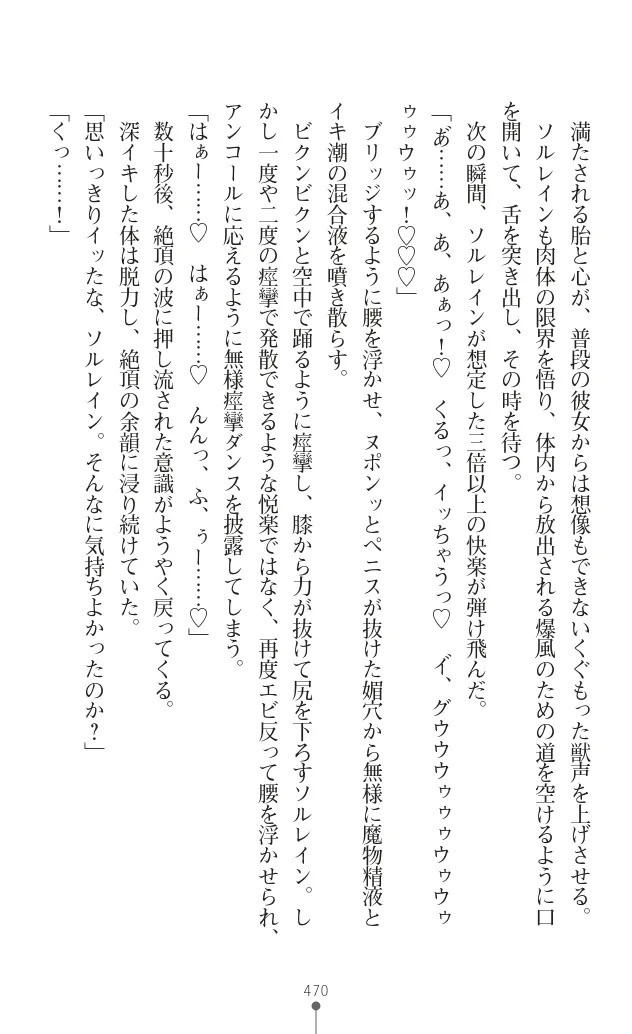 満たされる胎と心が、普段の彼女からは想像もできないくぐもった獣声を上げさせる。
ソルレインも肉体の限界を悟り、体内から放出される爆風のための道を空けるように口
を開いて、舌を突き出し、その時を待つ。
次の瞬間、ソルレインが想定した三倍以上の快楽が弾け飛んだ。
「あ゙……あ、あ、あぁっ！♡　くるっ、イッちゃうっ♡　イ゙、グウウウゥゥゥウゥウゥ
ゥゥウゥッ！♡♡♡」
ブリッジするように腰を浮かせ、ヌポンッとペニスが抜けた媚穴から無様に魔物精液と
イキ潮の混合液を噴き散らす。
ビクンビクンと空中で踊るように痙攣し、膝から力が抜けて尻を下ろすソルレイン。し
かし一度や二度の痙攣で発散できるような悦楽ではなく、再度エビ反って腰を浮かせられ、
アンコールに応えるように無様痙攣ダンスを披露してしまう。
「はぁー……♡　はぁー……♡　んんっ、ふ、ぅー……♡」
数十秒後、絶頂の波に押し流された意識がようやく戻ってくる。
深イキした体は脱力し、絶頂の余韻に浸り続けていた。
「思いっきりイッたな、ソルレイン。そんなに気持ちよかったのか？」
「くっ……！」
470